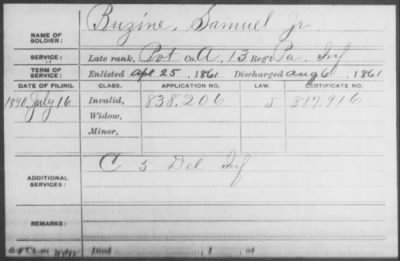 NAME OF SOLDIER: Buzine, Samuel Jr
SERVICE: Late rank, Pvt Co. A, 13 Reg't Pa. Inf
TERM OF SERVICE: Enlisted Apl 25, 1861 Discharged Aug 6, 1861
DATE OF FILING. CLASS. APPLICATION NO. LAW. CERTIFICATE NO.
1890, July 16 Invalid, 838.206 J 817.916
Widow,
Minor,
ADDITIONAL SERVICES: C 5 Del Inf
REMARKS:
Died , 1 , at